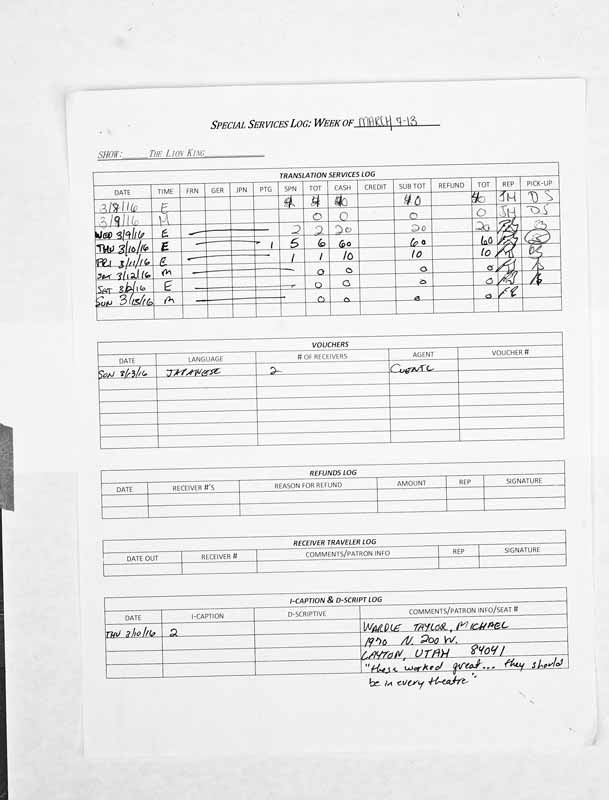 SPECIAL SERVICES LOG: WEEK OF MARCH 7-13
SHOW: THE LION KING
TRANSLATION SERVICES LOG
DATE TIME FRN GER JPN PTG SPN TOT CASH CREDIT SUB TOT REFUND TOT REP PICK-UP
3/8/16 E 4 4 40 40 40 JM DS
3/9/16 M 0 0 0 0 JM DS
WED 3/9/16 E 2 2 20 20 20
THU 3/10/16 E 1 5 6 60 60 60
FRI 3/11/16 E 1 1 10 10 10 DS
SAT 3/12/16 M 0 0 0 0
SAT 3/12/16 E 0 0 0 0
SUN 3/13/16 M 0 0 0 0
VOUCHERS
DATE LANGUAGE # OF RECEIVERS AGENT VOUCHER #
SUN 3/13/16 JAPANESE 2
REFUNDS LOG
DATE RECEIVER #'S REASON FOR REFUND AMOUNT REP SIGNATURE
RECEIVER TRAVELER LOG
DATE OUT RECEIVER # COMMENTS/PATRON INFO REP SIGNATURE
I-CAPTION & D-SCRIPT LOG
DATE I-CAPTION D-SCRIPTIVE COMMENTS/PATRON INFO/SEAT #
THU 3/10/16 2 WARDLE TAYLOR, MICHAEL
1970 N. 200 W.
LAYTON, UTAH 84041
"these worked great... they should
be in every theatre"